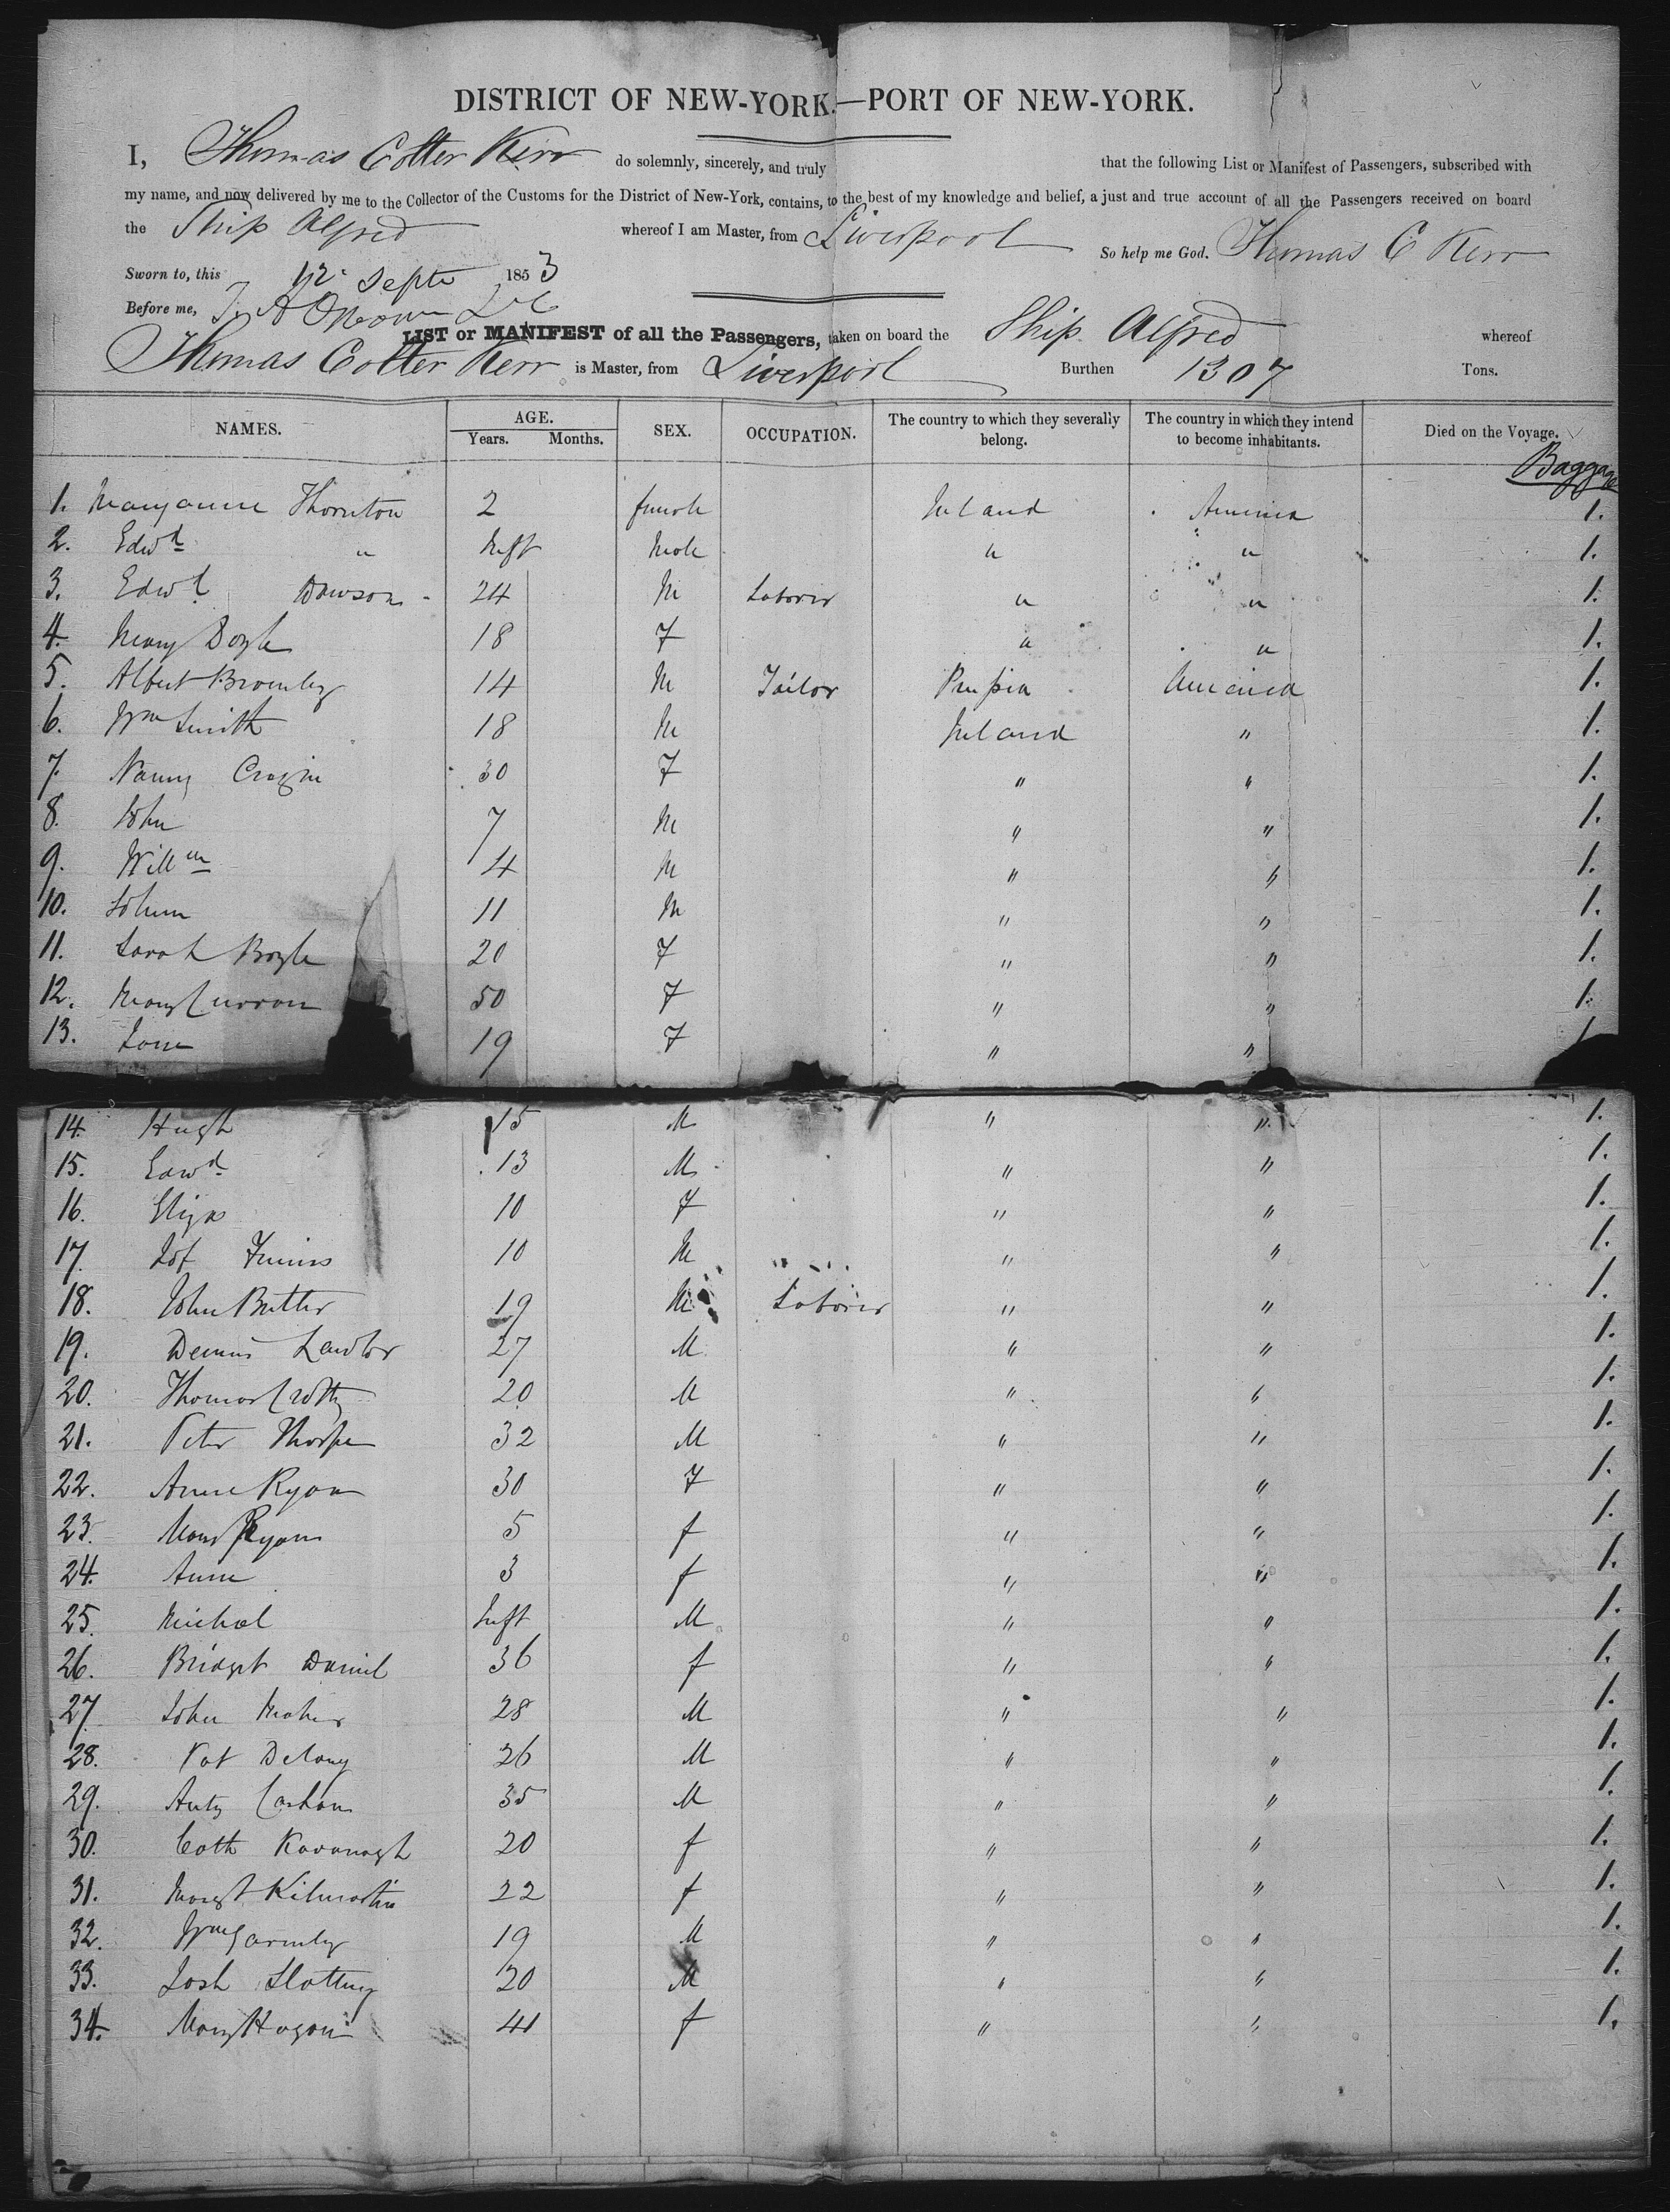 DISTRICT OF NEW-YORK.—PORT OF NEW-YORK.
I, Thomas Cotter Kerr do solemnly, sincerely, and truly that the following List or Manifest of Passengers, subscribed with
my name, and now delivered by me to the Collector of the Customs for the District of New-York, contains, to the best of my knowledge and belief, a just and true account of all the Passengers received on board
the Ship Alfred whereof I am Master, from Liverpool So help me God. Thomas C Kerr
Sworn to, this 12 Septr 1853
Before me,
LIST or MANIFEST of all the Passengers, taken on board the Ship Alfred whereof
Thomas Cotter Kerr is Master, from Liverpool Burthen 1307 Tons.
NAMES. AGE. Years. Months. SEX. OCCUPATION. The country to which they severally belong. The country in which they intend to become inhabitants. Died on the Voyage.
Baggage
1. Maryanne Thornton 2 female Ireland America 1.
2. Edwd " Inft Male " " 1.
3. Edwd Dawson 24 M Laborer " " 1.
4. Mary Doyle 18 F " " 1.
5. Albert Bromley 14 M Tailor Prussia America 1.
6. Wm Smith 18 M Ireland " 1.
7. Nanny 30 F " " 1.
8. John 7 M " " 1.
9. Willm 4 M " " 1.
10. 11 M " " 1.
11. Sarah Boyle 20 F " " 1.
12. Mary Curran 50 F " " 1.
13. Jane 19 F " " 1.
14. Hugh 15 M " " 1.
15. Edwd 13 M " " 1.
16. Eliza 10 F " " 1.
17. 10 M " " 1.
18. John Butler 19 M Laborer " " 1.
19. Dennis Lawlor 27 M " " 1.
20. Thomas Crotty 20 M " " 1.
21. Peter Thorpe 32 M " " 1.
22. Anne Ryan 30 F " " 1.
23. Mary Ryan 5 f " " 1.
24. Anne 3 f " " 1.
25. Michael Inft M " " 1.
26. Bridget Daniel 36 f " " 1.
27. John Maher 28 M " " 1.
28. Pat Delany 26 M " " 1.
29. Anty 35 M " " 1.
30. Cath Kavanagh 20 f " " 1.
31. Margt Kilmartin 22 f " " 1.
32. Wm Gormley 19 M " " 1.
33. Josh Slattery 20 M " " 1.
34. Mary Hogan 41 f " " 1.